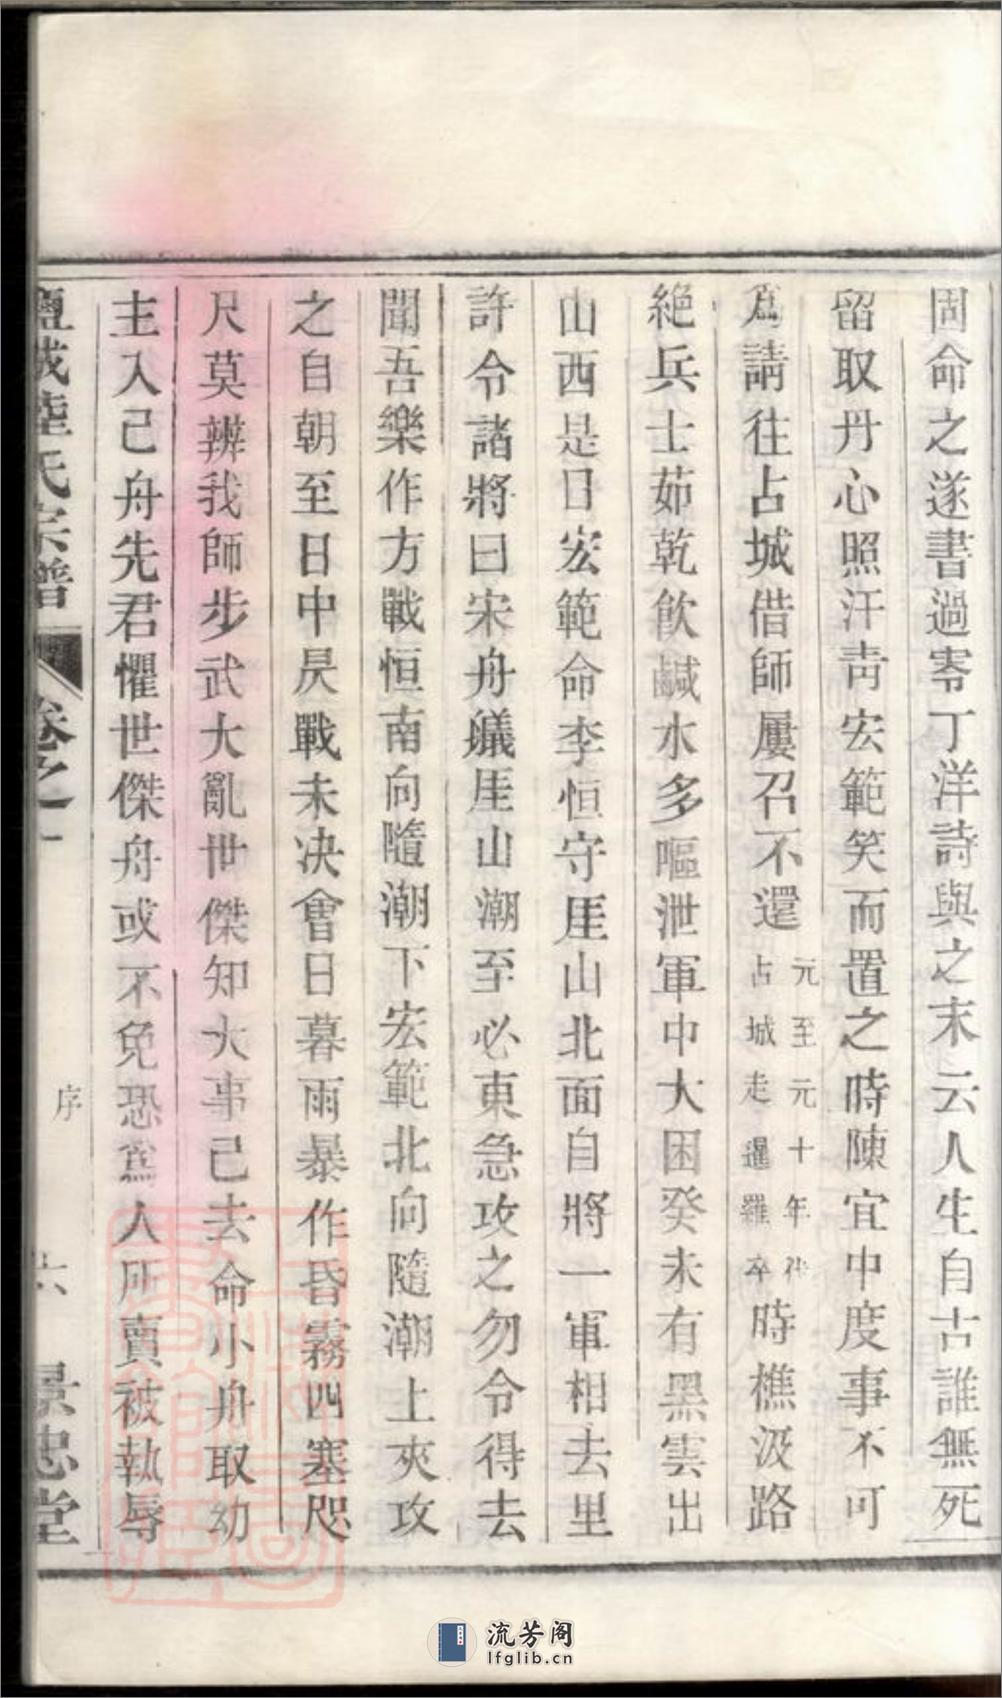 固命之遂書過零丁洋詩與之末云人生自古誰無死
留取丹心照汗靑宏範笑而置之時陳宜中度事不可
爲請往占城借師屢召不還元至元十年伐占城走暹羅卒時樵汲路
絕兵士茹乾飲鹹水多嘔泄軍中大困癸未有黑雲出
山西是日宏範命李恒守厓山北面自將一軍相去里
許令諸將曰宋舟艤厓山潮至必東急攻之勿令得去
聞吾樂作方戰恒南向隨潮下宏範北向隨潮上夾攻
之自朝至日中昃戰未决會日暮雨暴作昏霧四塞咫
尺莫辨我師步武大亂世傑知大事已去命小舟取幼
主入己舟先君懼世傑舟或不免恐爲人所賣被執辱
鹽城陸氏宗譜 卷之一 序 六 景忠堂
流芳阁
lfglib.cn